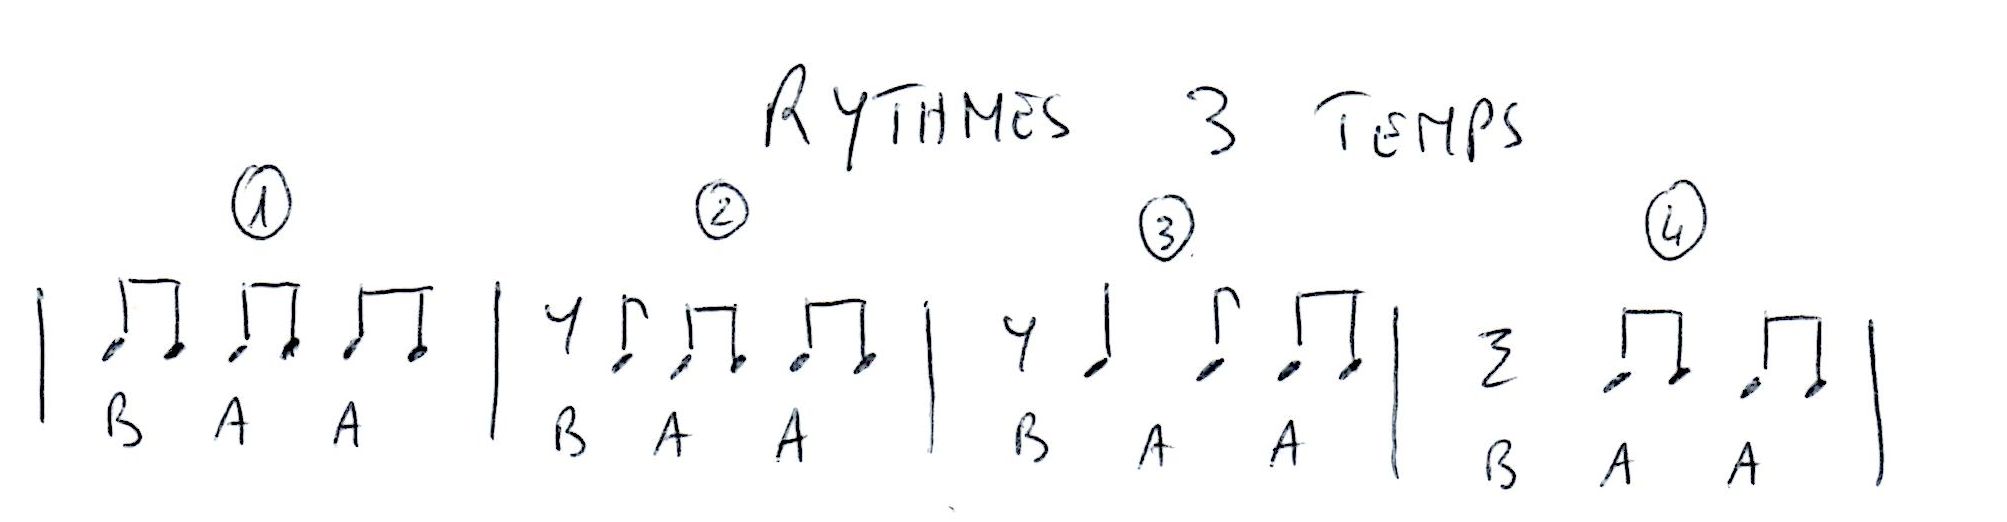 RYTHMES 3 TEMPS
1 2 3 4
B A A B A A B A A B A A